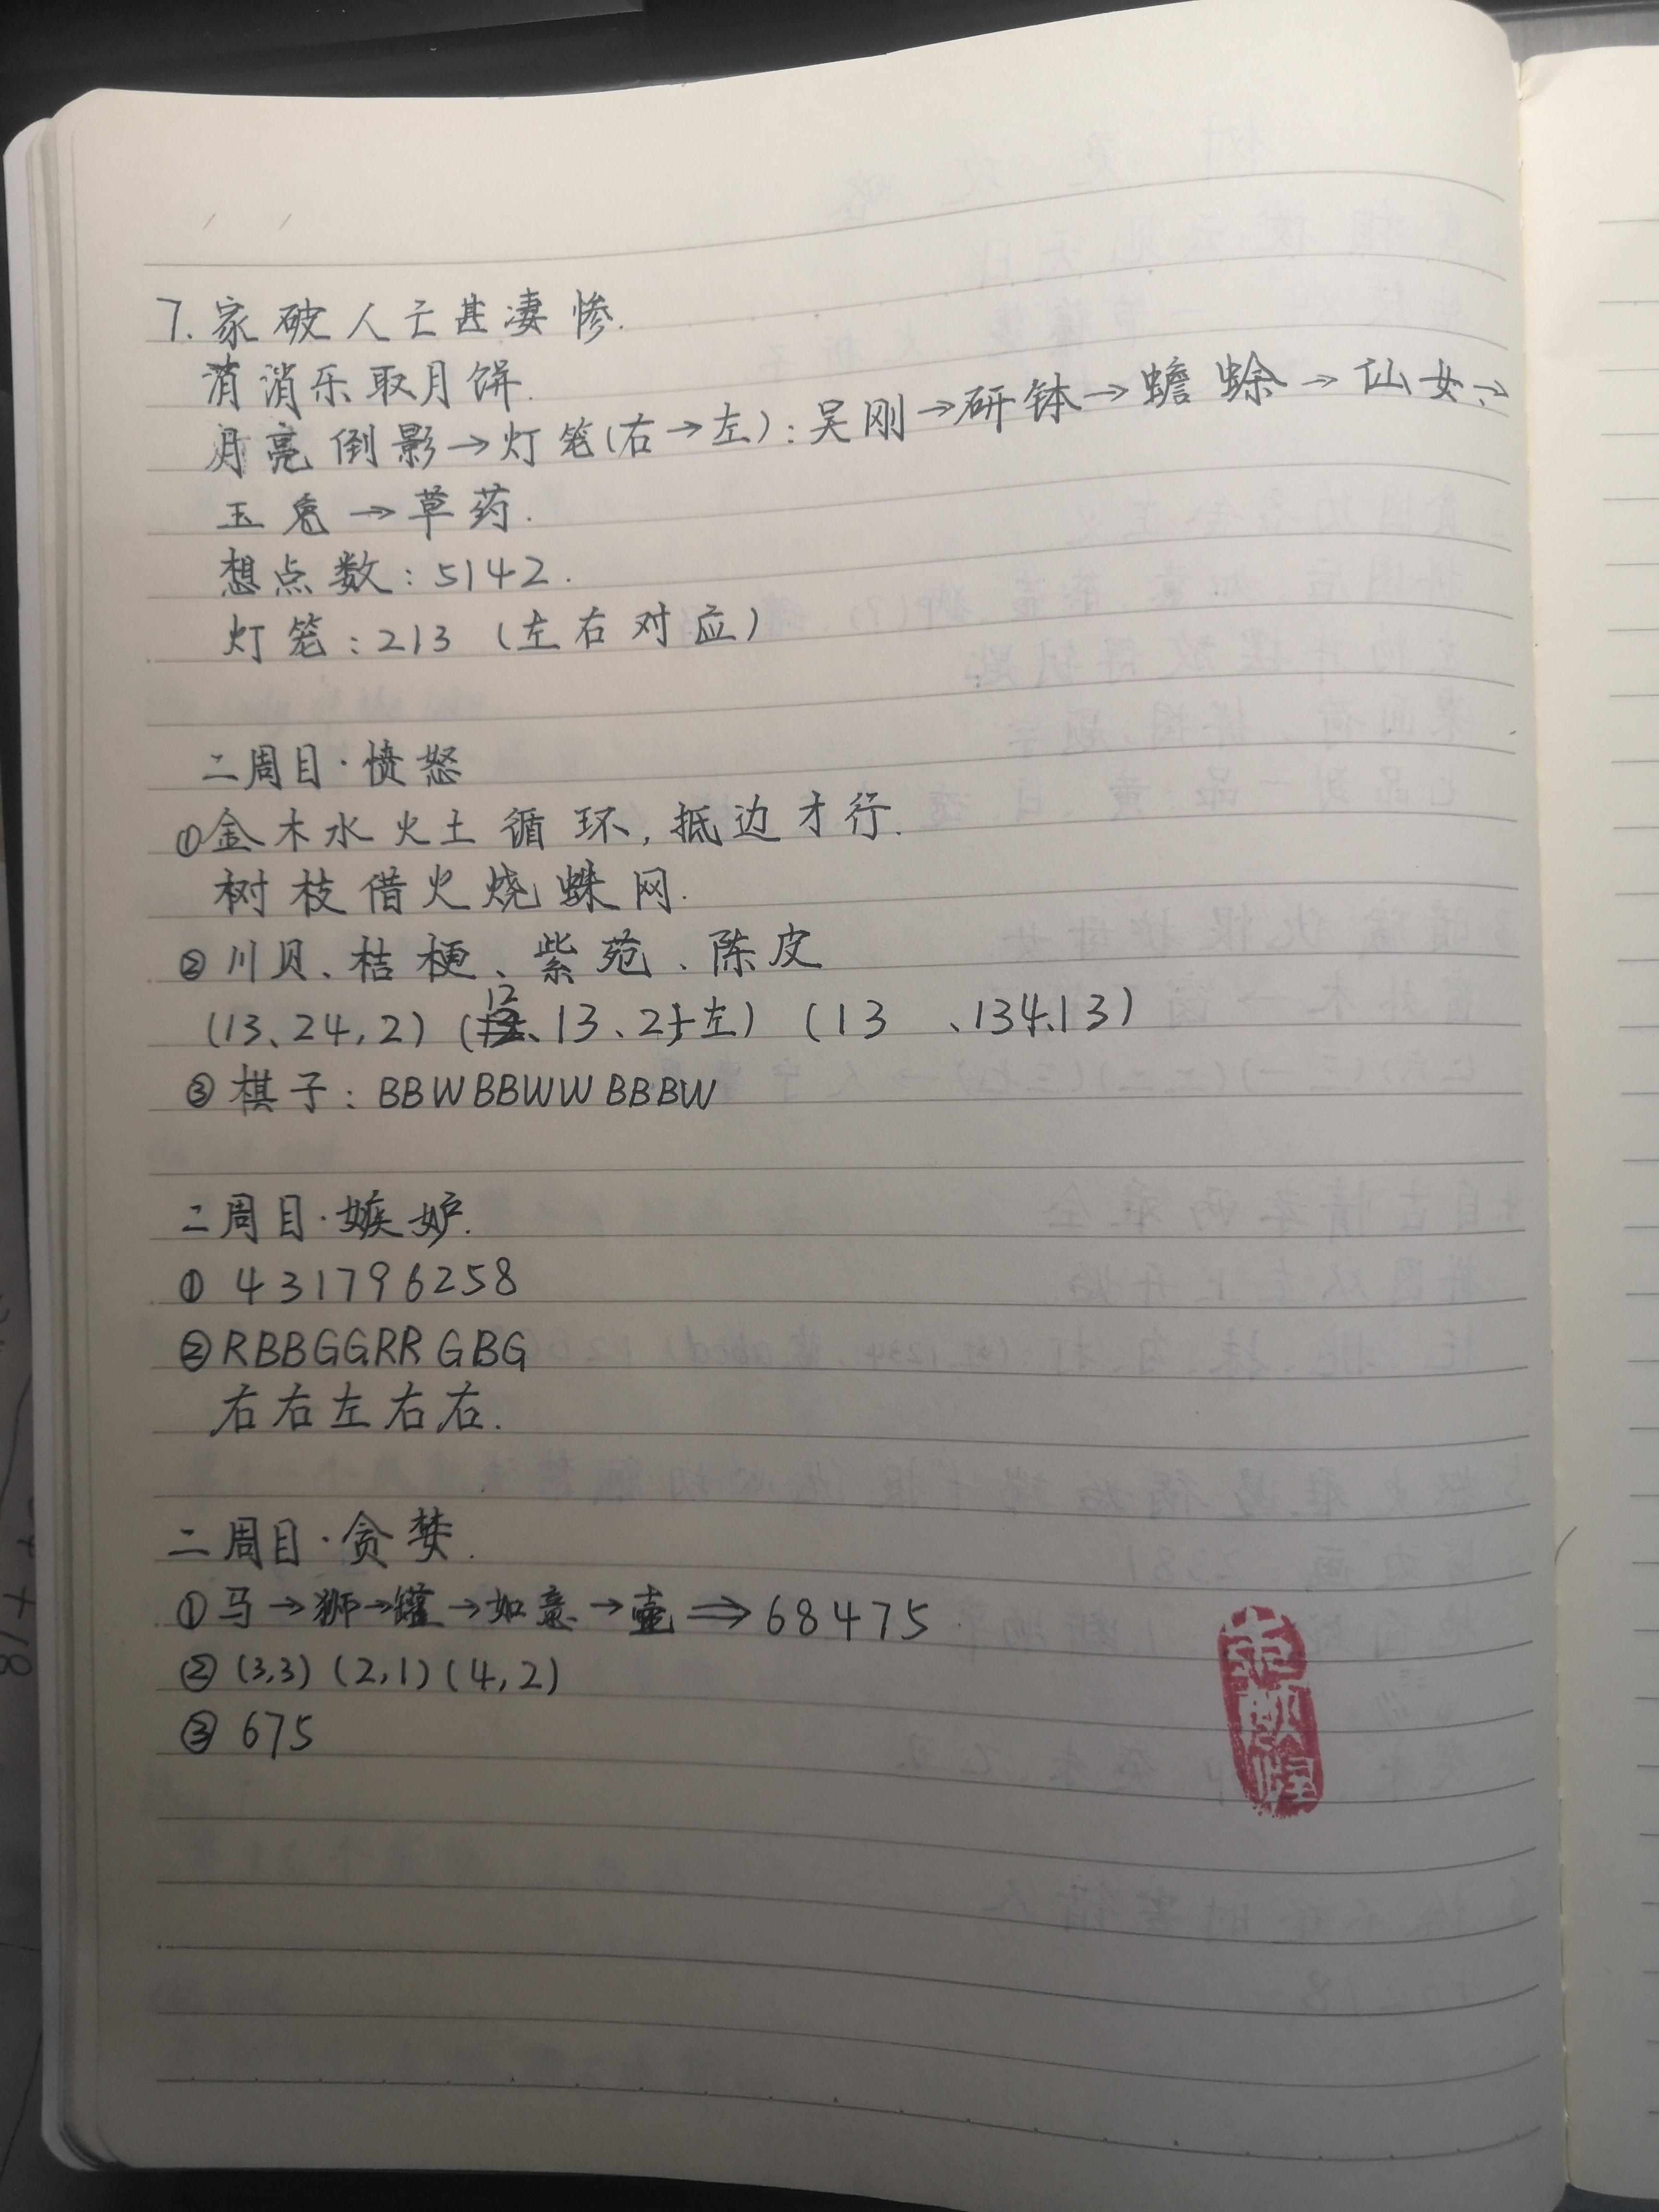 7.家破人亡甚凄惨.
消消乐取月饼.
月亮倒影→灯笼(右→左):吴刚→研钵→蟾蜍→仙女→
玉兔→草药.
想点数:5142.
灯笼:213 (左右对应)
二周目·愤怒
①金木水火土循环,抵边才行.
树枝借火烧蛛网.
②川贝、桔梗、紫菀、陈皮
(13、24,2) (12、13、2左) (13 、134、13)
③棋子:BBWBBWWBBBW
二周目·嫉妒.
① 431796258
②RBBGGRRGBG
右右左右右.
二周目·贪婪.
①马→狮→罐→如意→壶⇒68475
②(3,3)(2,1)(4,2)
③ 675